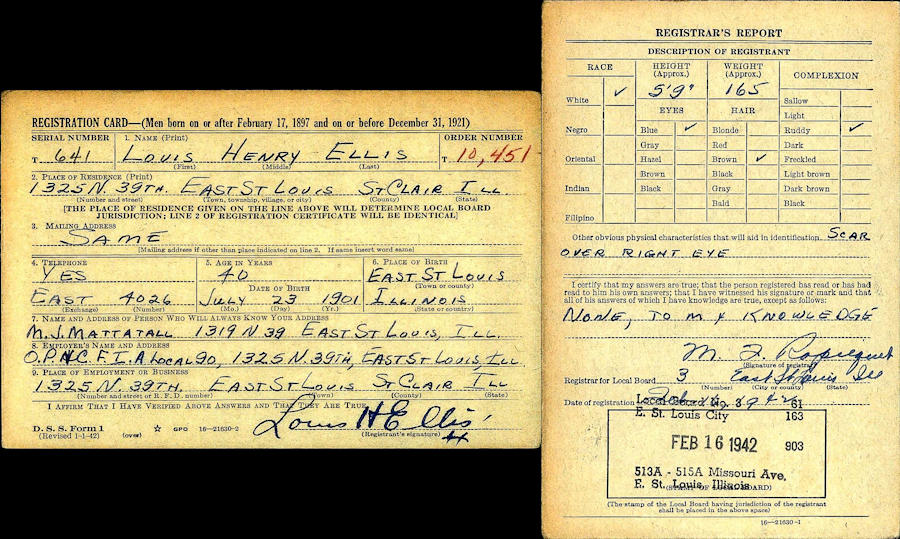 REGISTRATION CARD—(Men born on or after February 17, 1897 and on or before December 31, 1921)
SERIAL NUMBER 1. NAME (Print) ORDER NUMBER
T 641 LOUIS HENRY ELLIS T 10,451
(First) (Middle) (Last)
2. PLACE OF RESIDENCE (Print)
1325 N. 39TH. EAST ST LOUIS ST CLAIR ILL.
(Number and street) (Town, township, village, or city) (County) (State)
[THE PLACE OF RESIDENCE GIVEN ON THE LINE ABOVE WILL DETERMINE LOCAL BOARD
JURISDICTION; LINE 2 OF REGISTRATION CERTIFICATE WILL BE IDENTICAL]
3. MAILING ADDRESS
SAME
[Mailing address if other than place indicated on line 2. If same insert word same]
4. TELEPHONE 5. AGE IN YEARS 6. PLACE OF BIRTH
YES 40 EAST ST LOUIS
DATE OF BIRTH (Town or county)
EAST 4026 JULY 23 1901 ILLINOIS
(Exchange) (Number) (Mo.) (Day) (Yr.) (State or country)
7. NAME AND ADDRESS OF PERSON WHO WILL ALWAYS KNOW YOUR ADDRESS
M.J. MATTATALL 1319 N 39 EAST ST LOUIS, ILL.
8. EMPLOYER'S NAME AND ADDRESS
O.P.&C.F.I.A LOCAL 90, 1325 N. 39TH, EAST ST LOUIS, ILL
9. PLACE OF EMPLOYMENT OR BUSINESS
1325 N. 39TH. EAST ST LOUIS ST CLAIR ILL
(Number and street or R. F. D. number) (Town) (County) (State)
I AFFIRM THAT I HAVE VERIFIED ABOVE ANSWERS AND THAT THEY ARE TRUE.
Louis H Ellis
D. S. S. Form 1
(Revised 1-1-42) (over) ☆ GPO 16—21630-2 (Registrant's signature)
REGISTRAR'S REPORT
DESCRIPTION OF REGISTRANT
RACE HEIGHT (Approx.) WEIGHT (Approx.) COMPLEXION
White ✓ 5'9" 165
EYES HAIR Sallow
Light
Negro Blue ✓ Blonde Ruddy ✓
Gray Red Dark
Oriental Hazel Brown ✓ Freckled
Brown Black Light brown
Indian Black Gray Dark brown
Bald Black
Filipino
Other obvious physical characteristics that will aid in identification SCAR
OVER RIGHT EYE
I certify that my answers are true; that the person registered has read or has had
read to him his own answers; that I have witnessed his signature or mark and that
all of his answers of which I have knowledge are true, except as follows:
NONE, TO MY KNOWLEDGE
M.
(Signature of registrar)
Registrar for Local Board 3 East St Louis Ill
(Number) (City or county) (State)
Date of registration
Local Board No. 3 61
E. St. Louis City 163
FEB 16 1942 903
513A - 515A Missouri Ave.
E. St. Louis, Illinois
(STAMP OF LOCAL BOARD)
(The stamp of the Local Board having jurisdiction of the registrant
shall be placed in the above space)
16—21630-1